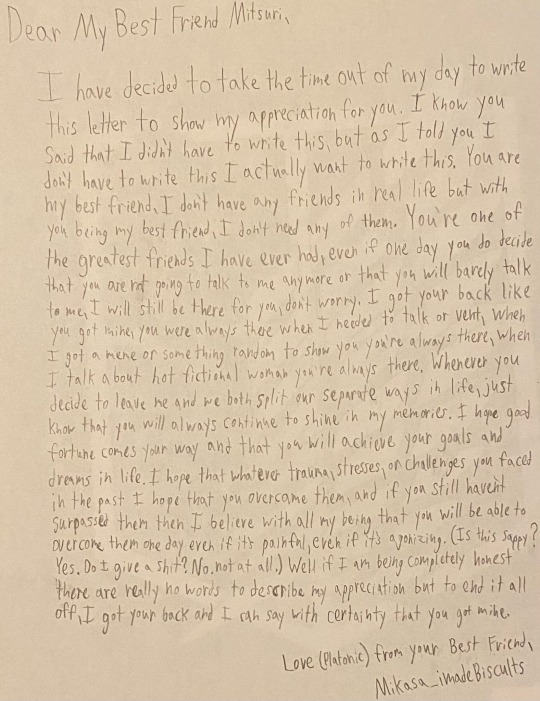 Dear My Best Friend Mitsuri,
I have decided to take the time out of my day to write
this letter to show my appreciation for you. I know you
said that I didn't have to write this, but as I told you I
don't have to write this I actually want to write this. You are
my best friend, I don't have any friends in real life but with
you being my best friend, I don't need any of them. You're one of
the greatest friends I have ever had, even if one day you do decide
that you are not going to talk to me anymore or that you will barely talk
to me, I will still be there for you, don't worry. I got your back like
you got mine, you were always there when I needed to talk or vent, when
I got a meme or something random to show you you're always there, when
I talk about hot fictional woman you're always there. Whenever you
decide to leave me and we both split our separate ways in life, just
know that you will always continue to shine in my memories. I hope good
fortune comes your way and that you will achieve your goals and
dreams in life. I hope that whatever trauma, stresses, or challenges you faced
in the past I hope that you overcame them, and if you still havent
surpassed them then I believe with all my being that you will be able to
overcome them one day even if it's painful, even if it's agonizing. (Is this sappy?
Yes. Do I give a shit? No, not at all.) Well if I am being completely honest
there are really no words to describe my appreciation but to end it all
off, I got your back and I can say with certainty that you got mine.
Love (Platonic) from your Best Friend,
Mikasa_imadeBiscults